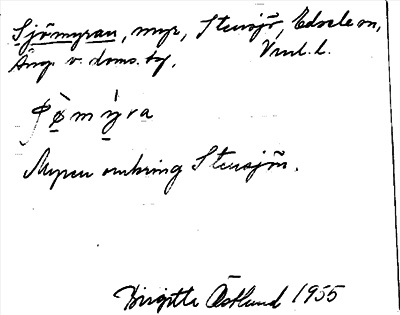 Sjömyran, myr, Stensjö, Edsele sn,
Ång. v. doms. tg. Vnl. l.
ʃø̀mỳra
Myren omkring Stensjön.
Birgitta Östlund 1955